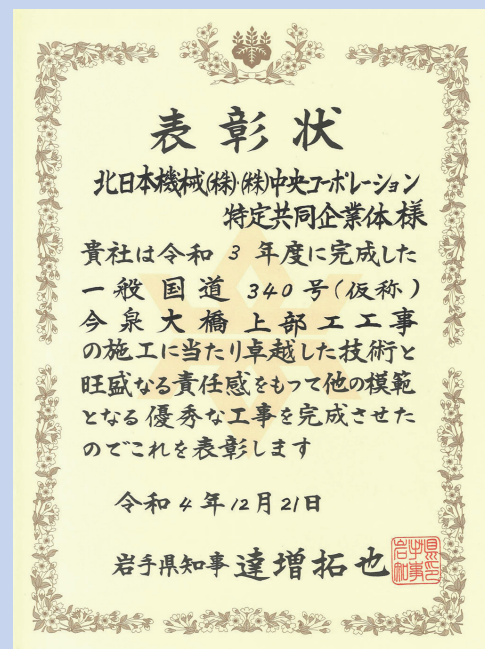 表彰状
北日本機械(株)・(株)中央コーポレーション
特定共同企業体 様
貴社は令和3年度に完成した
一般国道340号(仮称)
今泉大橋上部工工事
の施工に当たり卓越した技術と
旺盛なる責任感をもって他の模範
となる優秀な工事を完成させた
のでこれを表彰します
令和4年12月21日
岩手県知事 達増拓也